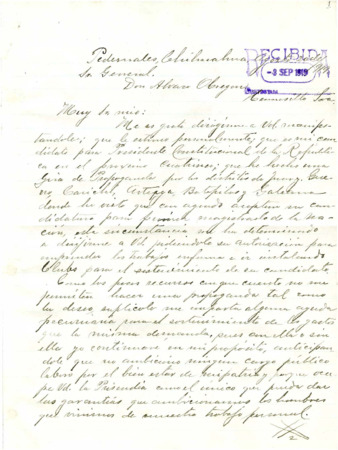 Pedernales, Chihuahua,
RECIBIDA
-8 SEP 1919
Sr General.
Don Alvaro Obregon
Hermosillo Son.
Muy Sr mio:
Me es grato dirigirme a Vd. manifes-
tandole; que le estimo
didato para Presidente Constitucional de la Republica
en el proximo que he hecho una
Gira de Propaganda por los distritos de
Carichi, Arteaga, Batopilas y Galeana
donde he visto que con agrado aceptan su can-
didatura para primer magistrado de la na-
ción, esta circunstancia me ha determinado
a dirijirme a Vd pidiendole su autorizacion para
emprender los trabajos e ir instalando
Clubs para el sostenimiento de su candidatura.
Como los pocos recursos con que cuento no me
permiten hacer una propaganda tal como
lo deseo, suplicole me imparta alguna ayuda
pecuniaria para el sostenimiento de los gastos
que la misma demanda, pues con ella o sin
ella yo continuare en mi propósito, anticipan-
dole que no ambiciono ningun cargo público
labro por el bien estar de mi patria y porque ocu-
pe Vd. la Presidencia como el unico que puede dar
las garantias que ambicionamos los hombres
que vivimos de nuestro trabajo personal.